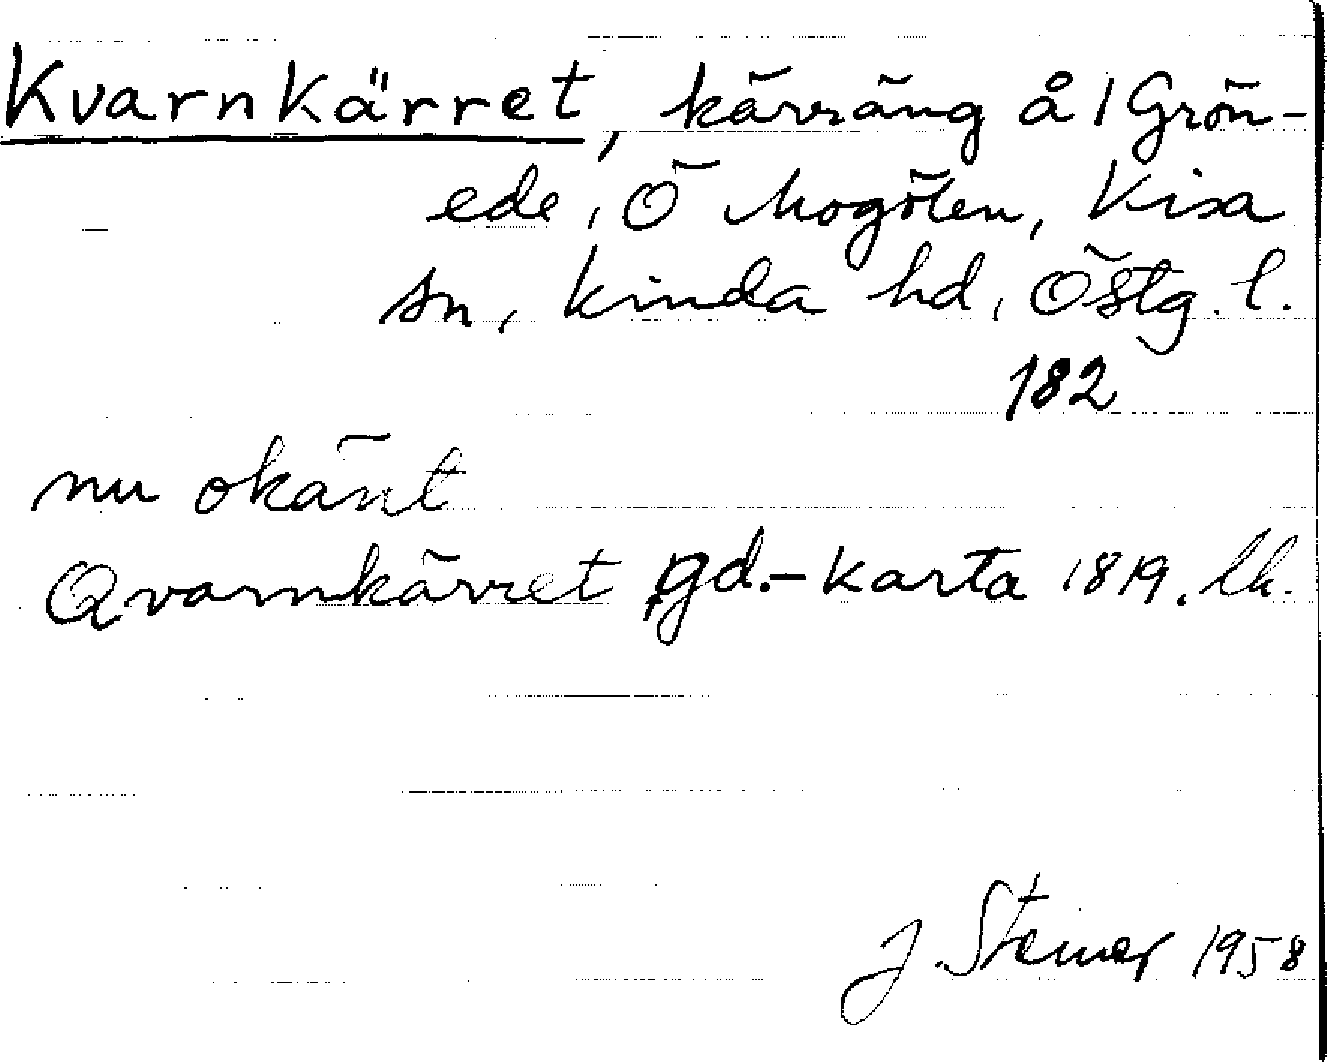 Kvarnkärret, kärräng å 1 Grön-
ede, Ö Mogölen, Kisa
sn, Kinda hd, Östg. l.
182
nu okänt
Qvarnkärret gd.-karta 1819.
J. Steiner 1958